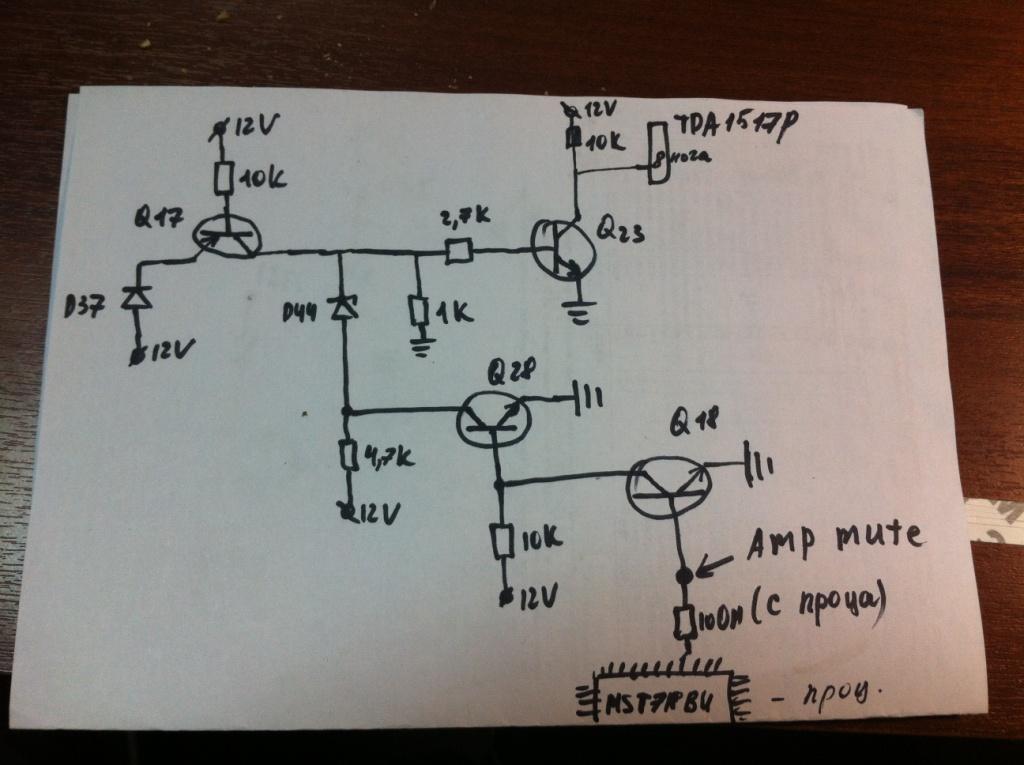 12V
10K
Q17
D37
12V
D44
1K
2,7K
12V
10K
TDA1517P
8 нога
Q23
Q28
4,7K
12V
10K
12V
Q18
Amp mute
(с проца)
100М
- проц.